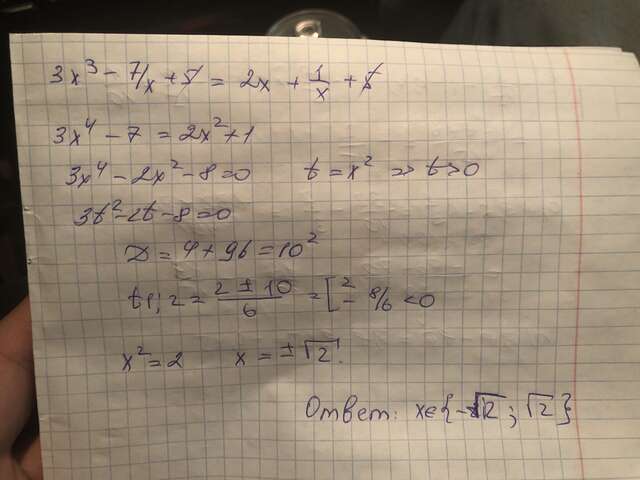 3x³ - 7/x + 5 = 2x + 1/x + 5
3x⁴ - 7 = 2x² + 1
3x⁴ - 2x² - 8 = 0 t = x² => t > 0
3t² - 2t - 8 = 0
D = 4 + 96 = 10²
t1;2 = (2 ± 10)/6 = [2 - 8/6 < 0
x² = 2 x = ±√2.
Ответ: x∈{-√2; √2}